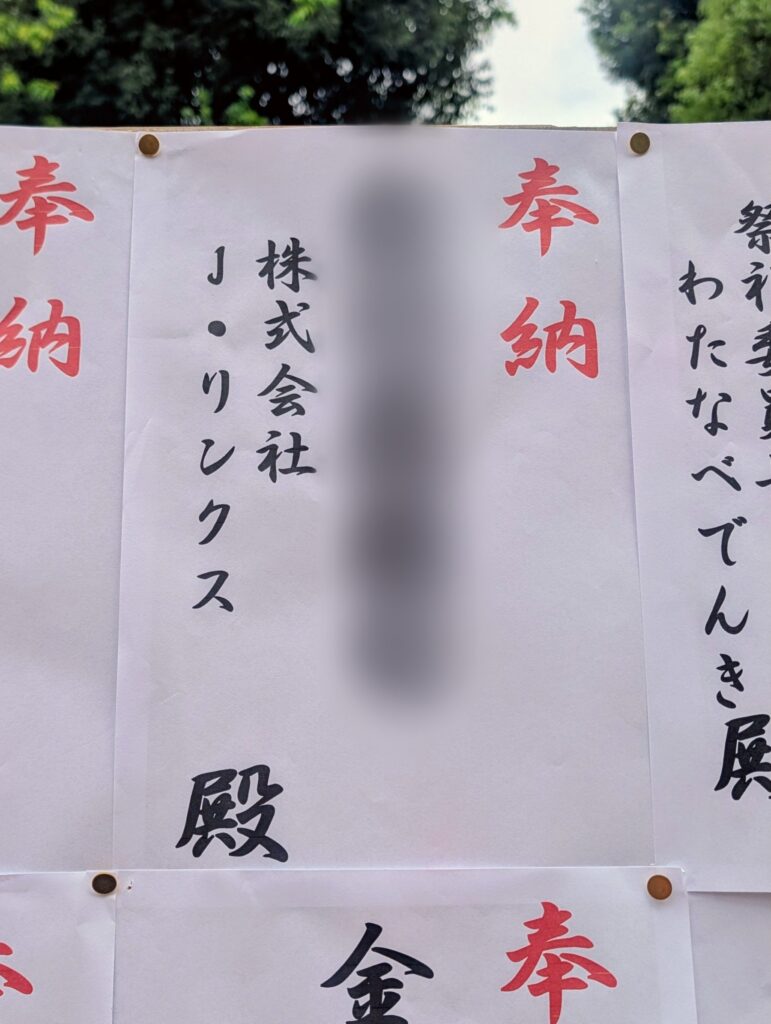 祭礼委員
わたなべでんき
殿
奉納
株式会社
J・リンクス
殿
奉納
奉
金
奉